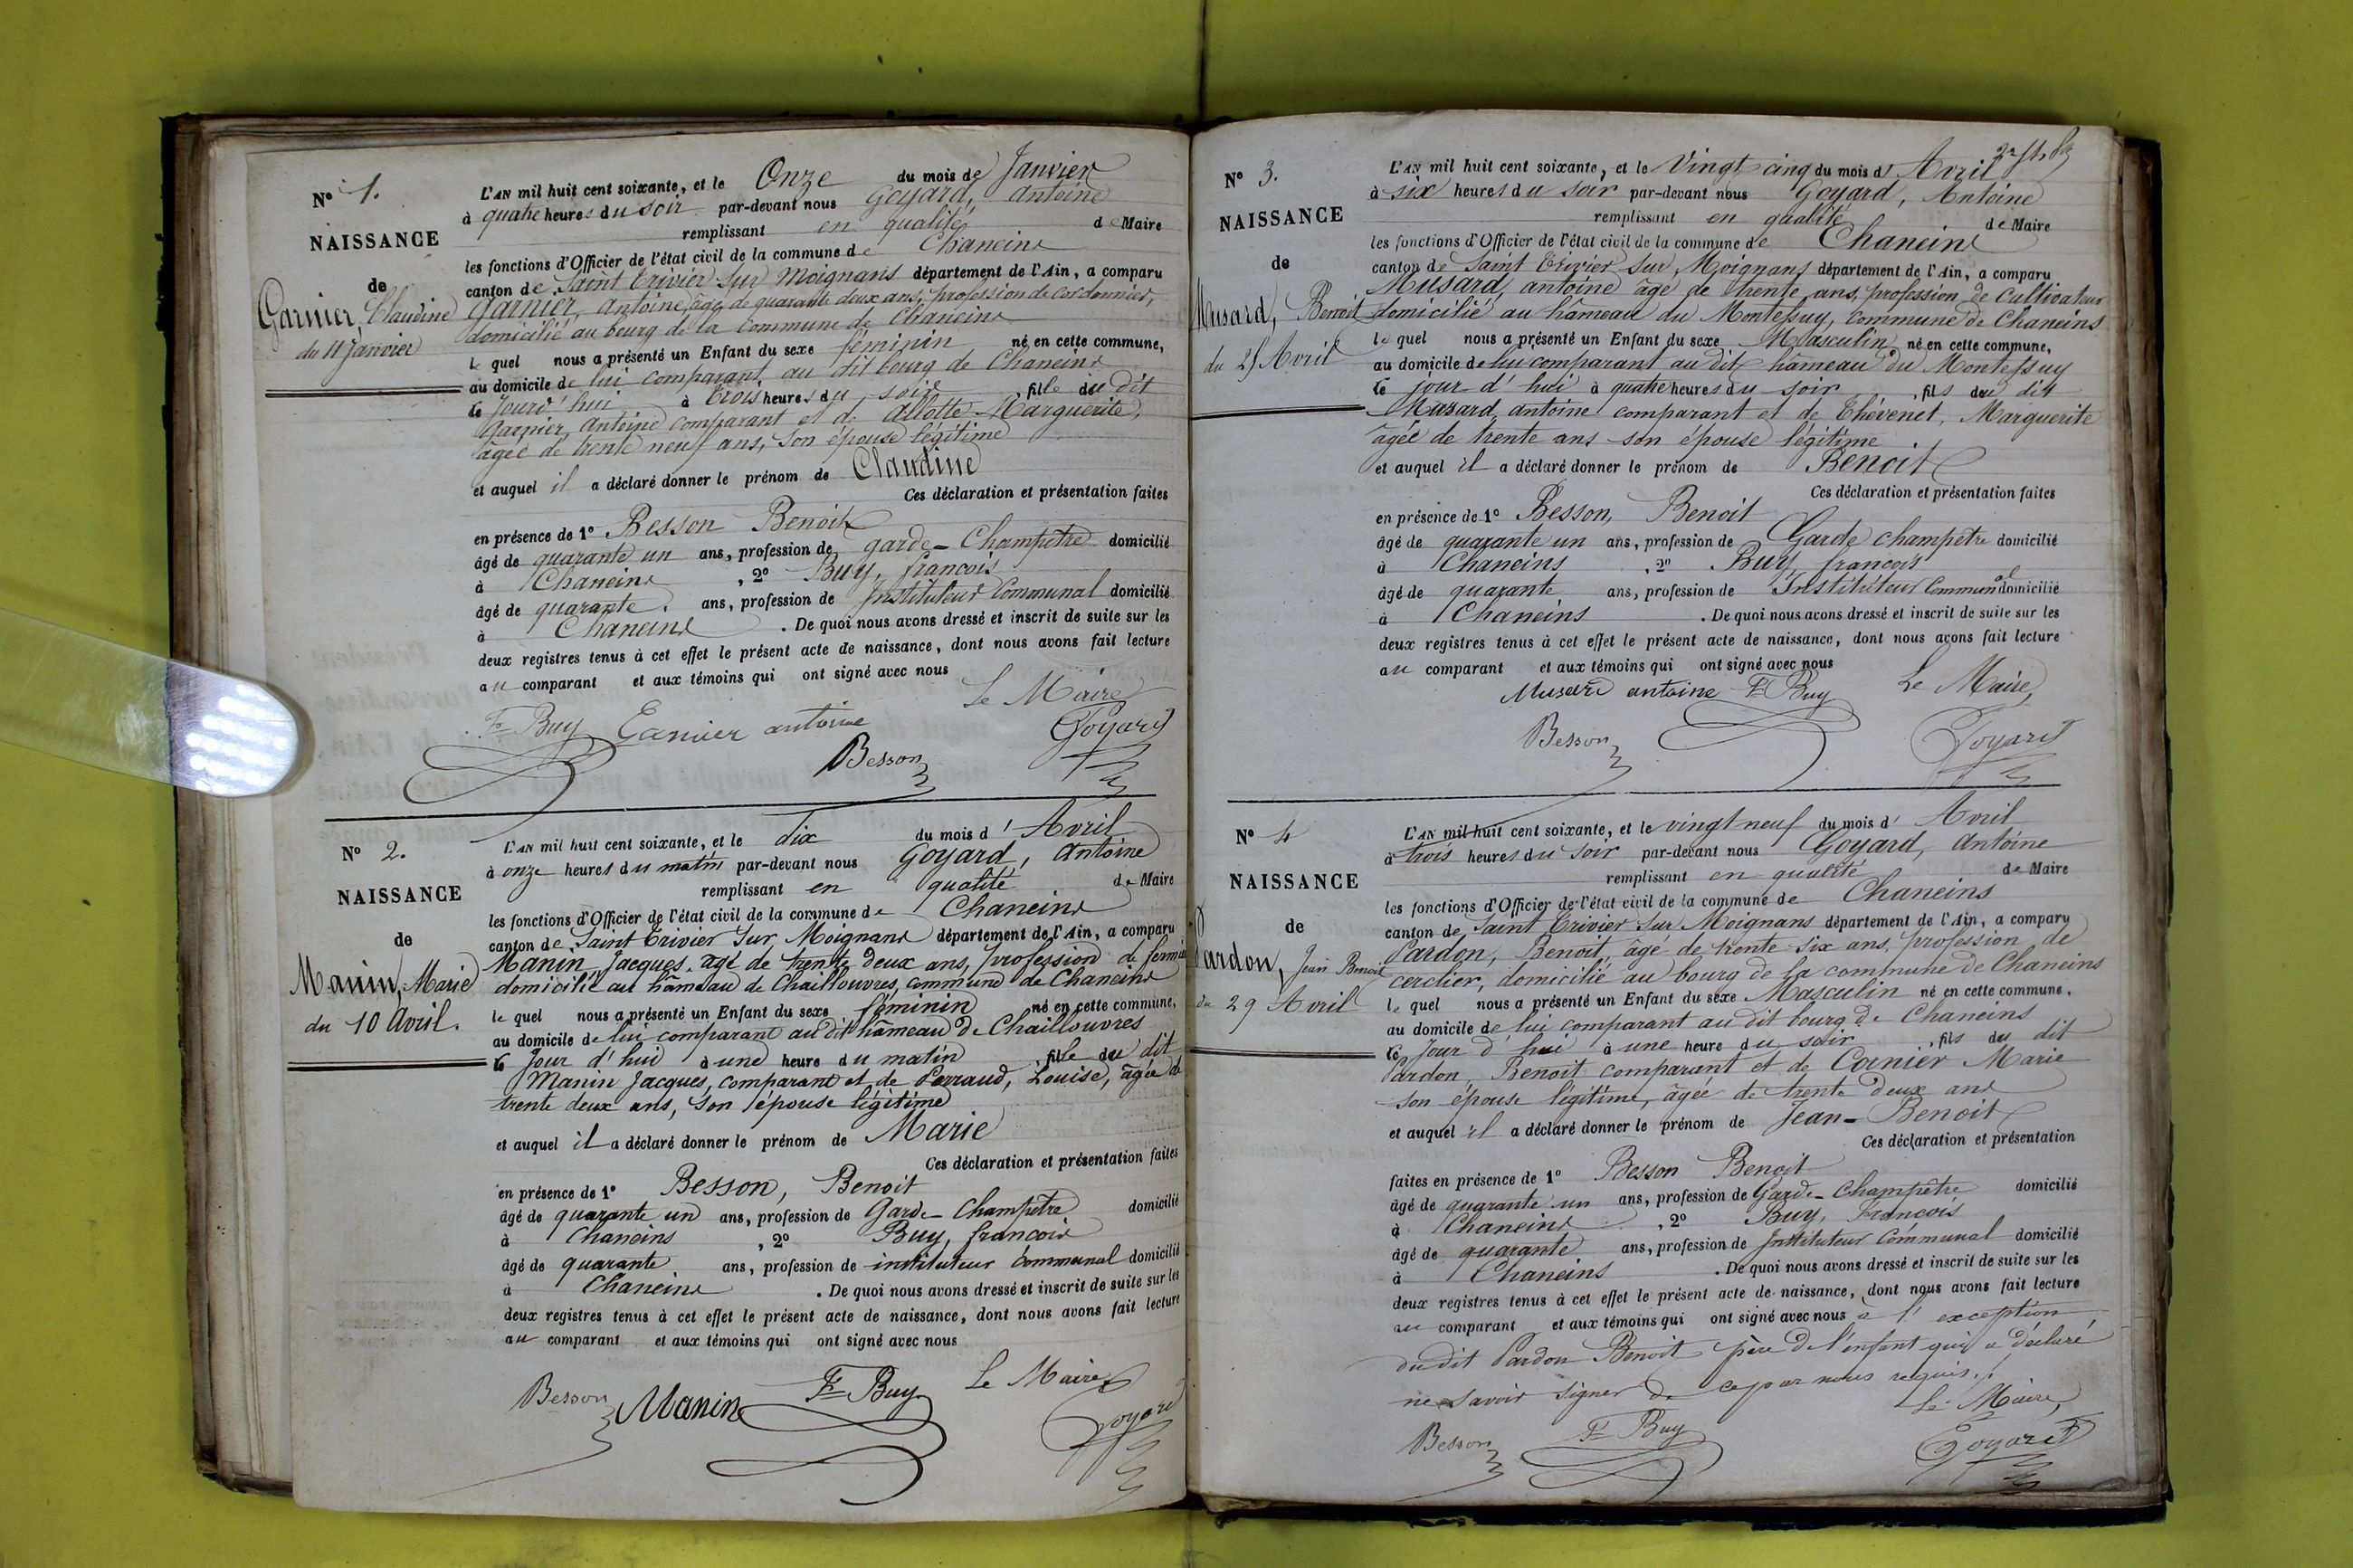 N° 1.
NAISSANCE
de
Garnier, Claudine
du 11 Janvier
L'AN mil huit cent soixante, et le Onze du mois de Janvier
à quatre heures du soir par-devant nous Goyard, Antoine
remplissant en qualité de Maire
les fonctions d'Officier de l'état civil de la commune de Chaneins
canton de Saint Trivier sur Moignans département de l'Ain, a comparu
Garnier, Antoine, âgé de quarante deux ans, profession de cordonnier,
domicilié au bourg de la commune de Chaneins
le quel nous a présenté un Enfant du sexe féminin né en cette commune,
au domicile de lui comparant au dit bourg de Chaneins
le Jourd'hui à trois heures du soir, fille du dit
Garnier, Antoine comparant et de Allotte Marguerite,
âgée de trente neuf ans, son épouse légitime
et auquel il a déclaré donner le prénom de Claudine
Ces déclaration et présentation faites
en présence de 1° Besson Benoit
âgé de quarante un ans, profession de garde-Champêtre domicilié
à Chaneins, 2° Buy, françois
âgé de quarante. ans, profession de Instituteur Communal domicilié
à Chaneins. De quoi nous avons dressé et inscrit de suite sur les
deux registres tenus à cet effet le présent acte de naissance, dont nous avons fait lecture
au comparant et aux témoins qui ont signé avec nous
Le Maire
Fs Buy Garnier antoine Goyard
Besson
N° 2.
NAISSANCE
de
Manin, Marie
du 10 Avril.
L'AN mil huit cent soixante, et le dix du mois d'Avril
à onze heures du matin par-devant nous Goyard, Antoine
remplissant en qualité de Maire
les fonctions d'Officier de l'état civil de la commune de Chaneins
canton de Saint Trivier Sur Moignans département de l'Ain, a comparu
Manin Jacques, âgé de trente deux ans, profession de fermier
domicilié au hâmeau de Chaillouvres, commune de Chaneins
le quel nous a présenté un Enfant du sexe féminin né en cette commune,
au domicile de lui comparant au dit hâmeau de Chaillouvres
le Jour d'hui à une heure du matin, fille du dit
Manin Jacques, comparant et de Perraud, Louise, âgée de
trente deux ans, son épouse légitime
et auquel il a déclaré donner le prénom de Marie
Ces déclaration et présentation faites
en présence de 1° Besson, Benoit
âgé de quarante un ans, profession de Garde-Champêtre domicilié
à Chaneins, 2° Buy, françois
âgé de quarante. ans, profession de instituteur Communal domicilié
à Chaneins. De quoi nous avons dressé et inscrit de suite sur les
deux registres tenus à cet effet le présent acte de naissance, dont nous avons fait lecture
au comparant et aux témoins qui ont signé avec nous
Le Maire
Besson Manin Fs Buy Goyard
N° 3.
NAISSANCE
de
Musard, Benoit
du 25 Avril
L'AN mil huit cent soixante, et le Vingt cinq du mois d'Avril
à six heures du soir par-devant nous Goyard, Antoine
remplissant en qualité de Maire
les fonctions d'Officier de l'état civil de la commune de Chaneins
canton de Saint Trivier sur Moignans département de l'Ain, a comparu
Musard, antoine âgé de trente ans, profession de Cultivateur
domicilié au hâmeau du Montessuy, Commune de Chaneins
le quel nous a présenté un Enfant du sexe Masculin né en cette commune,
au domicile de lui comparant au dit hâmeau du Montessuy
le jour d'hui à quatre heures du soir, fils du dit
Musard, antoine comparant et de Thévenet, Marguerite
âgée de trente ans son épouse légitime
et auquel il a déclaré donner le prénom de Benoit
Ces déclaration et présentation faites
en présence de 1° Besson, Benoit
âgé de quarante un ans, profession de Garde champêtre domicilié
à Chaneins, 2° Buy, françois
âgé de quarante ans, profession de Instituteur Communal domicilié
à Chaneins. De quoi nous avons dressé et inscrit de suite sur les
deux registres tenus à cet effet le présent acte de naissance, dont nous avons fait lecture
au comparant et aux témoins qui ont signé avec nous
Musard antoine Fs Buy Le Maire,
Besson Goyard
N° 4
NAISSANCE
de
Pardon, Jean Benoit
du 29 Avril
L'AN mil huit cent soixante, et le vingt neuf du mois d'Avril
à trois heures du soir par-devant nous Goyard, Antoine
remplissant en qualité de Maire
les fonctions d'Officier de l'état civil de la commune de Chaneins
canton de Saint Trivier Sur Moignans département de l'Ain, a comparu
Pardon, Benoit, âgé de trente six ans, profession de
cerclier, domicilié au bourg de la commune de Chaneins
le quel nous a présenté un Enfant du sexe Masculin né en cette commune,
au domicile de lui comparant au dit bourg de Chaneins
le Jour d'hui à une heure du soir, fils du dit
Pardon, Benoit comparant et de Cornier Marie
son épouse légitime, âgée de trente deux ans
et auquel il a déclaré donner le prénom de Jean-Benoit
Ces déclaration et présentation
faites en présence de 1° Besson Benoit
âgé de quarante un ans, profession de Garde-Champêtre domicilié
à Chaneins, 2° Buy, François
âgé de quarante ans, profession de Instituteur Communal domicilié
à Chaneins. De quoi nous avons dressé et inscrit de suite sur les
deux registres tenus à cet effet le présent acte de naissance, dont nous avons fait lecture
au comparant et aux témoins qui ont signé avec nous à l'exception
du dit Pardon Benoit père de l'enfant qui a déclaré
ne savoir signer de ce par nous requis.
Le Maire,
Besson Fs Buy Goyard